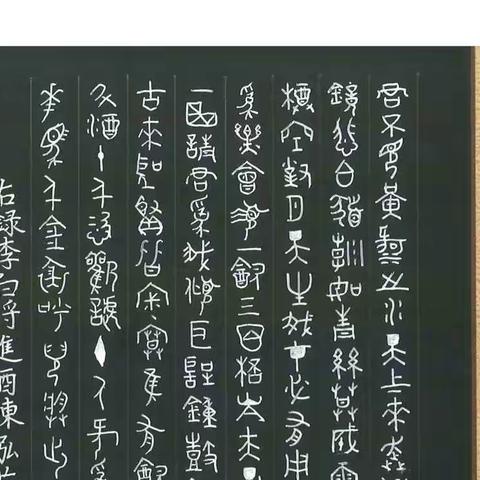 君不見黃河之水天上來奔
鏡悲白髮朝如青絲暮成雪
樽空對月天生我才必有用
爲樂會須一飲三百杯岑夫
一曲請君爲我傾耳聽鐘鼓
古來聖賢皆寂寞惟有飲
斗酒十千恣歡謔主人何爲
花馬千金裘呼兒將出
右錄李白將進酒東泓